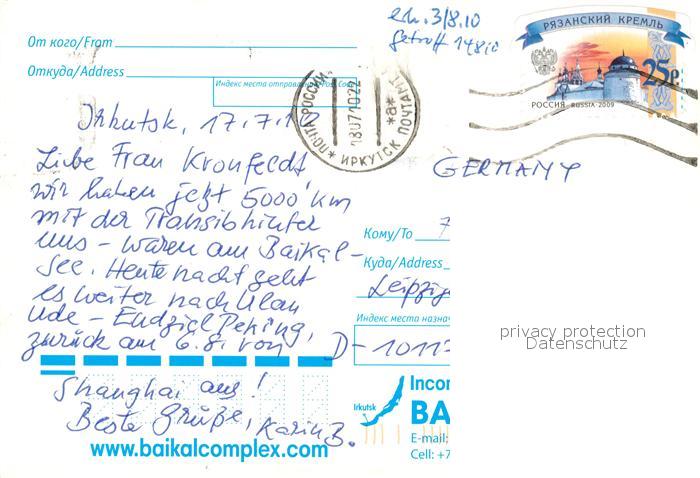 erh. 3/8.10
getr. 14810
РЯЗАНСКИЙ КРЕМЛЬ
25р
РОССИЯ RUSSIA · 2009
От кого/From
Откуда/Address
Индекс места отправления/Post Code
ПОЧТА РОССИИ
180710 22
ИРКУТСК ПОЧТАМТ
*a*
Irkutsk, 17.7.10
Liebe Frau Kronfeldt
wir haben jetzt 5000 km
mit der Transib hinter
uns – waren am Baikal-
see. Heute nacht geht
es weiter nach Ulan
Ude – Endziel Peking,
zurück am 6.8. von
Shanghai aus!
Beste Grüße, Karin B.
GERMANY
Кому/To
Куда/Address
Leipzige
Индекс места назнач
D-10117
privacy protection
Datenschutz
Irkutsk
Incom
BA
E-mail:
Cell: +7
www.baikalcomplex.com